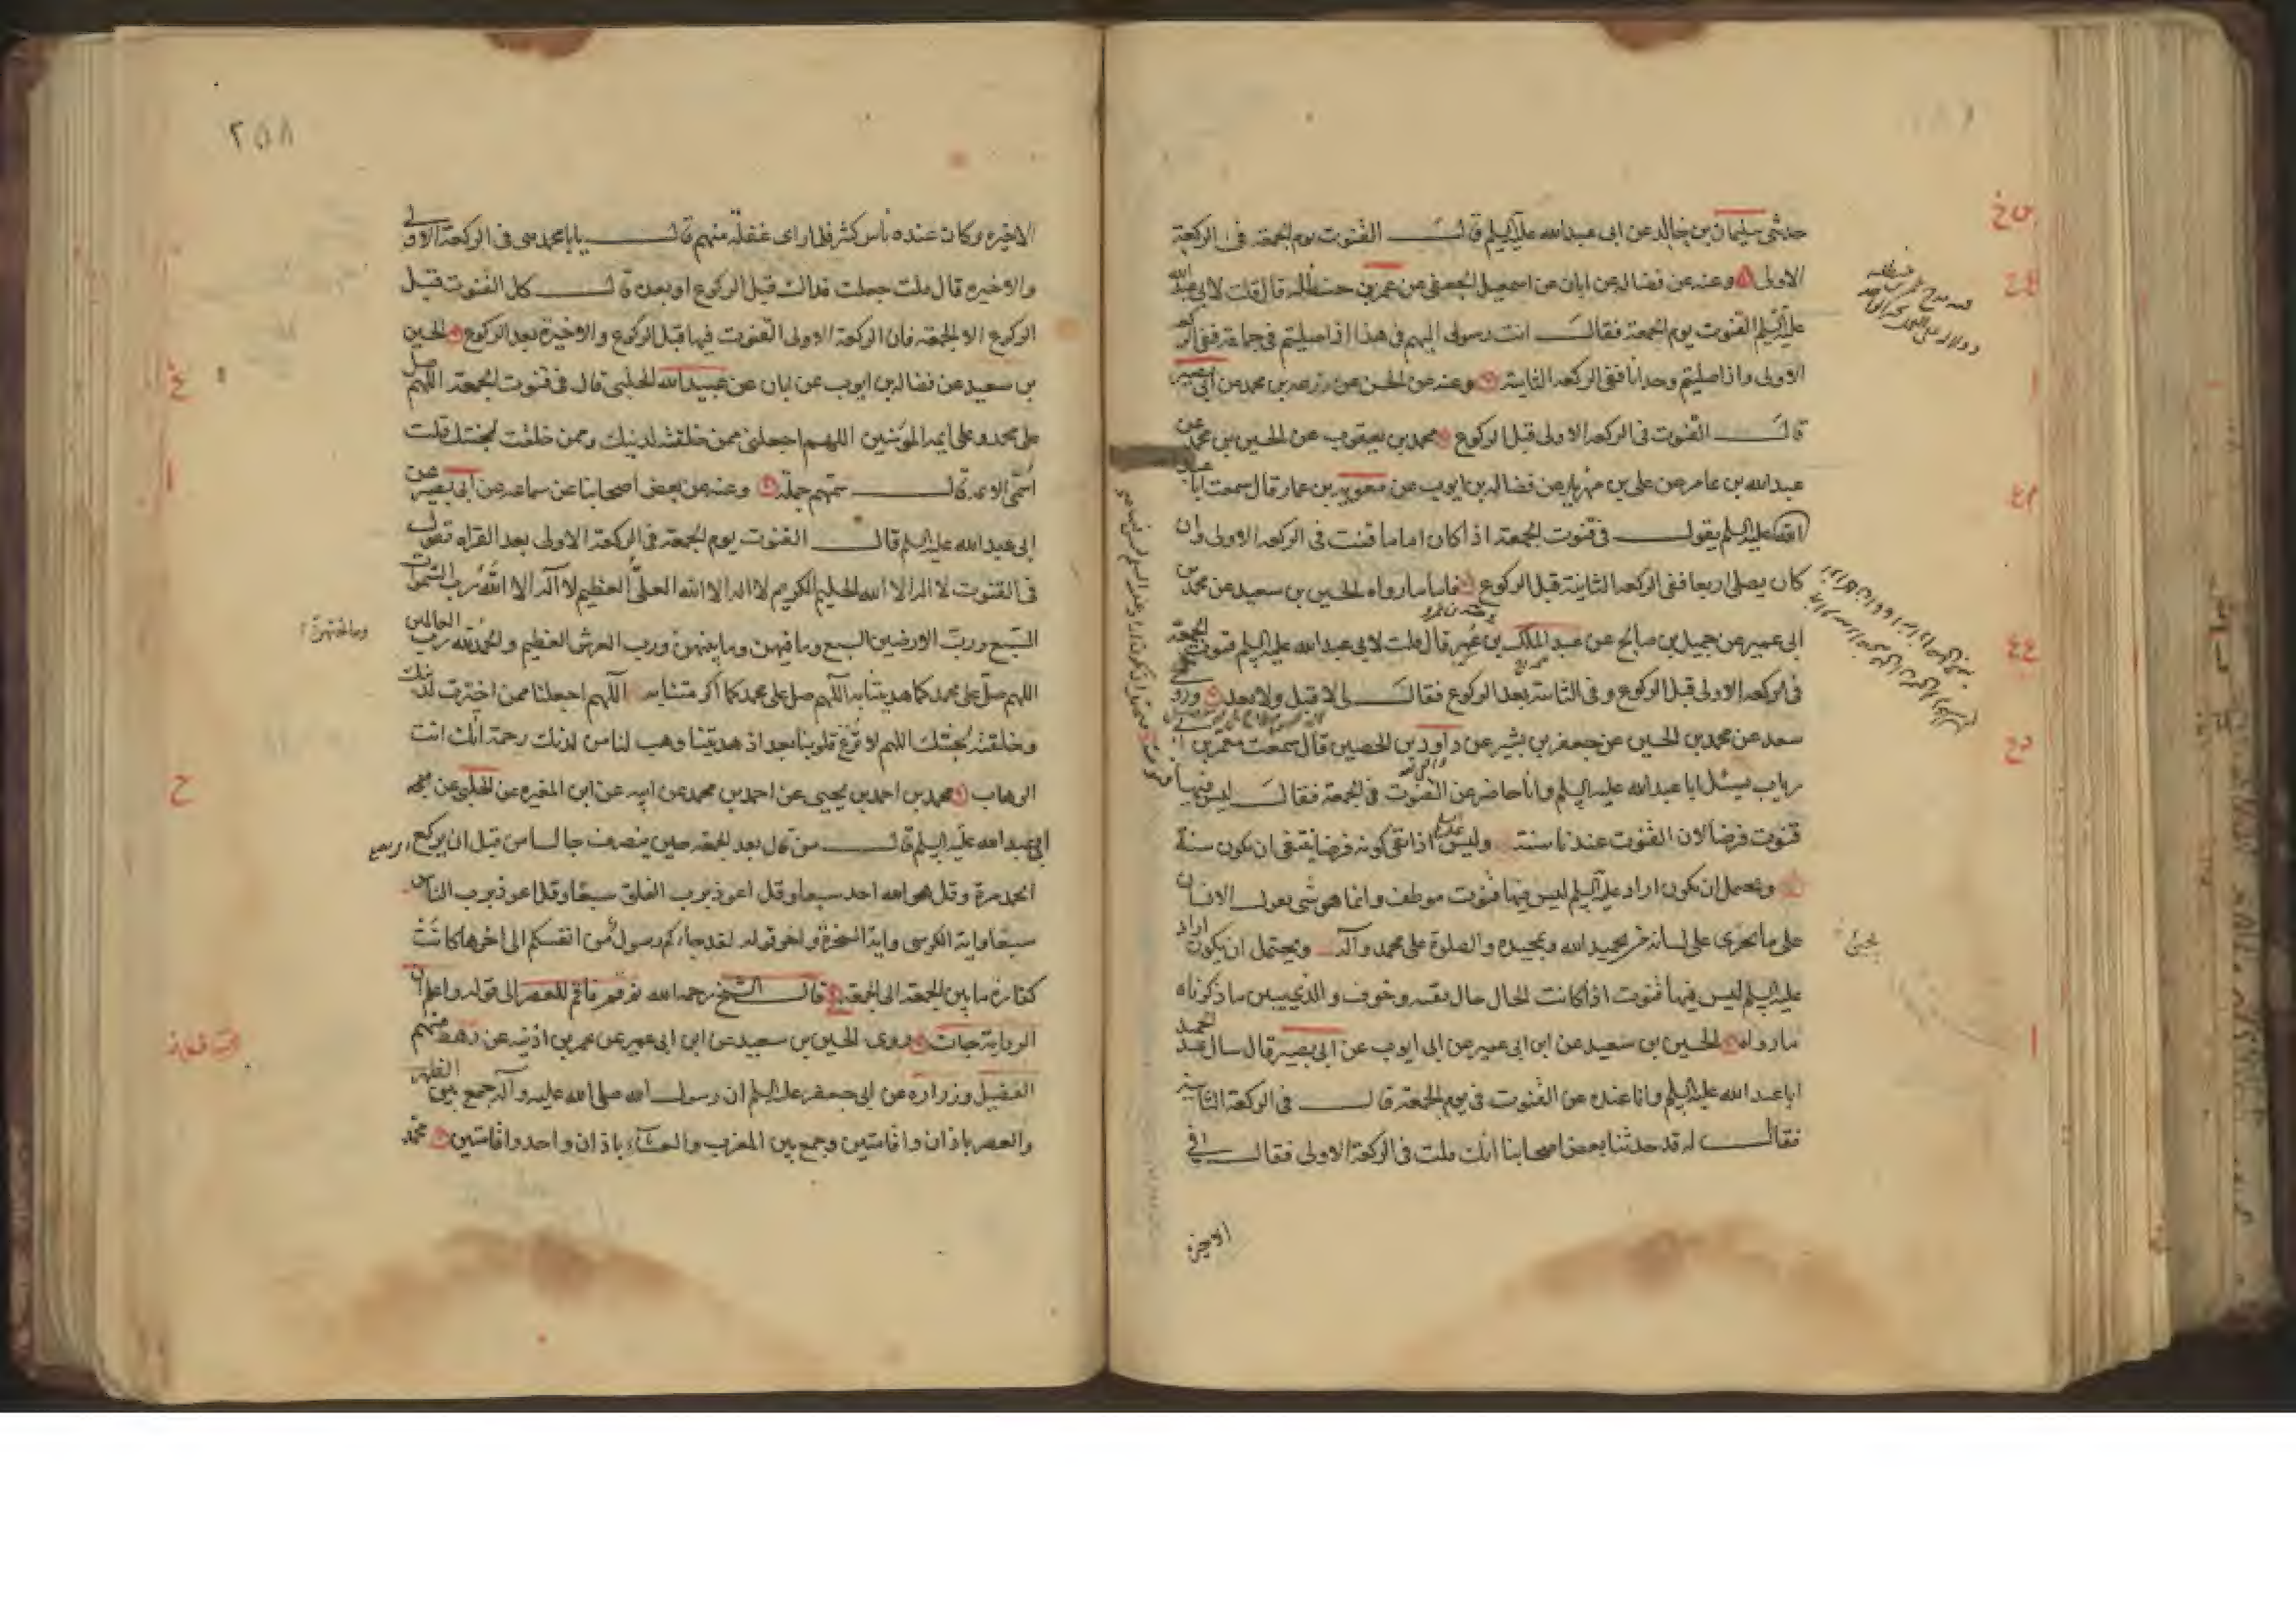 حدثنی سلیمان بن خالد عن ابی عبدالله علیه السلم قال القنوت یوم الجمعة فی الرکعة
الاولی وعنه عن فضاله عن ابان عن اسمعیل الجعفی عن عمر بن حنظله قال قلت لابی عبدالله
علیه السلم القنوت یوم الجمعة فقال انت رسولی الیهم فی هذا اذا صلیتم فی جماعة ففی الرکعة
الاولی واذا صلیتم وحدانا ففی الرکعة الثانیة وعنه عن الحسن عن زرعه بن محمد عن ابی بصیر
قال القنوت فی الرکعه الاولی قبل الرکوع محمد بن یعقوب عن الحسین بن محمد عن
عبدالله بن عامر عن علی بن مهزیار عن فضاله بن ایوب عن معویه بن عمار قال سمعت ابا عبد
الله علیه السلم یقول فی قنوت الجمعة اذا کان اماما قنت فی الرکعه الاولی وان
کان یصلی اربعا ففی الرکعة الثانیة قبل الرکوع فاما ما رواه الحسین بن سعید عن محمد بن
ابی عمیر عن جمیل بن صالح عن عبد الملک بن عمرو قال قلت لابی عبدالله علیه السلم قنوت الجمعة
فی الرکعه الاولی قبل الرکوع وفی الثانیة بعد الرکوع فقال لی لا قبل ولا بعد وروی
سعد عن محمد بن الحسین عن جعفر بن بشیر عن داود بن الحصین قال سمعت معمر بن ابی
ریاب یسئل ابا عبدالله علیه السلم وانا حاضر عن القنوت فی الجمعة فقال لیس فیها
قنوت فرضا لان القنوت عندنا سنة ولیس اذا نفی کونه فرضا ینتفی ان یکون سنة
ویحتمل ان یکون اراد علیه السلم لیس فیها قنوت موظف وانما هو شی یقول الانسان
علی ما یجری علی لسانه من تحمید الله وتمجیده والصلوة علی محمد وآله ویحتمل ان یکون اراد
علیه السلم لیس فیها قنوت اذا کانت الحال حال تقیه وخوف والذی یبین ما ذکرناه
ما رواه الحسین بن سعید عن ابن ابی عمیر عن ابی ایوب عن ابی بصیر قال سال عبد الحمید
ابا عبدالله علیه السلم وانا عنده عن القنوت فی یوم الجمعة قال فی الرکعة الثانیة
فقال له قد حدثنا بعض اصحابنا انک قلت فی الرکعة الاولی فقال فی
الاخیرة
۲۵۸
الاخیره وکان عنده ناس کثیر فلما رای غفلة منهم قال یا ابا محمد هی فی الرکعة الاولی
والاخیره قال قلت جعلت فداک قبل الرکوع او بعده قال کل القنوت قبل
الرکوع الا الجمعة فان الرکعة الاولی القنوت فیها قبل الرکوع والاخیرة بعد الرکوع الحسین
بن سعید عن فضاله بن ایوب عن ابان عن عبید الله الحلبی قال فی قنوت الجمعة اللهم صل
علی محمد وعلی ایمه المؤمنین اللهم اجعلنی ممن خلقته لدینک وممن خلقت لجنتک قلت
اسمی الایمة قال سمهم جملة وعنه عن بعض اصحابنا عن سماعه عن ابی بصیر عن
ابی عبدالله علیه السلم قال القنوت یوم الجمعة فی الرکعة الاولی بعد القراة تقول
فی القنوت لا اله الا الله الحلیم الکریم لا اله الا الله العلی العظیم لا اله الا الله رب السموات
السبع ورب الارضین السبع وما فیهن وما بینهن ورب العرش العظیم والحمد لله رب العالمین
وما تحتهن
اللهم صل علی محمد کما هدیتنا به اللهم صل علی محمد کما اکرمتنا به اللهم اجعلنا ممن اخترت لدینک
وخلقته لجنتک اللهم لا تزغ قلوبنا بعد اذ هدیتنا وهب لنا من لدنک رحمة انک انت
الوهاب محمد بن احمد بن یحیی عن احمد بن محمد عن ابیه عن ابن المغیره عن
ابی عبدالله علیه السلم قال من قال بعد الجمعة حین ینصرف جالسا من قبل ان یرکع
الحمد مرة وقل هو الله احد سبعا وقل اعوذ برب الفلق سبعا وقل اعوذ برب الناس
سبعا وایة الکرسی وایة السخرة واخر قوله لقد جاءکم رسول من انفسکم الی اخرها کانت
کفارة ما بین الجمعة الی الجمعة قال الشیخ رحمه الله ثم قم فاقم للعصر الی قوله واعلم ان
الروایة جات روی الحسین بن سعید عن ابن ابی عمیر عن عمر بن اذینه عن رهط منهم
الفضیل وزراره عن ابی جعفر علیه السلم ان رسول الله صلی الله علیه وآله جمع بین الظهر
والعصر باذان واقامتین وجمع بین المغرب والعشاء باذان واحد واقامتین محمد